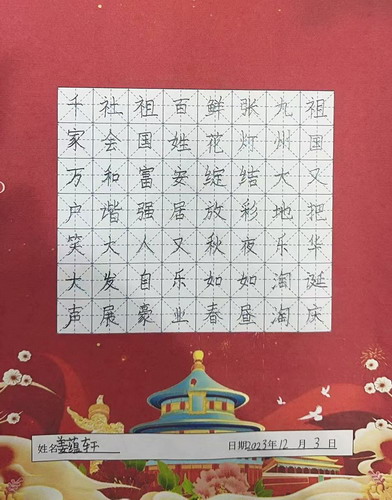 祖国又把华诞庆
九州大地乐淘淘
张灯结彩夜如昼
鲜花绽放秋如春
百姓安居又乐业
祖国富强人自豪
社会和谐大发展
千家万户笑大声
姓名姜蕴轩 日期2023年12月3日